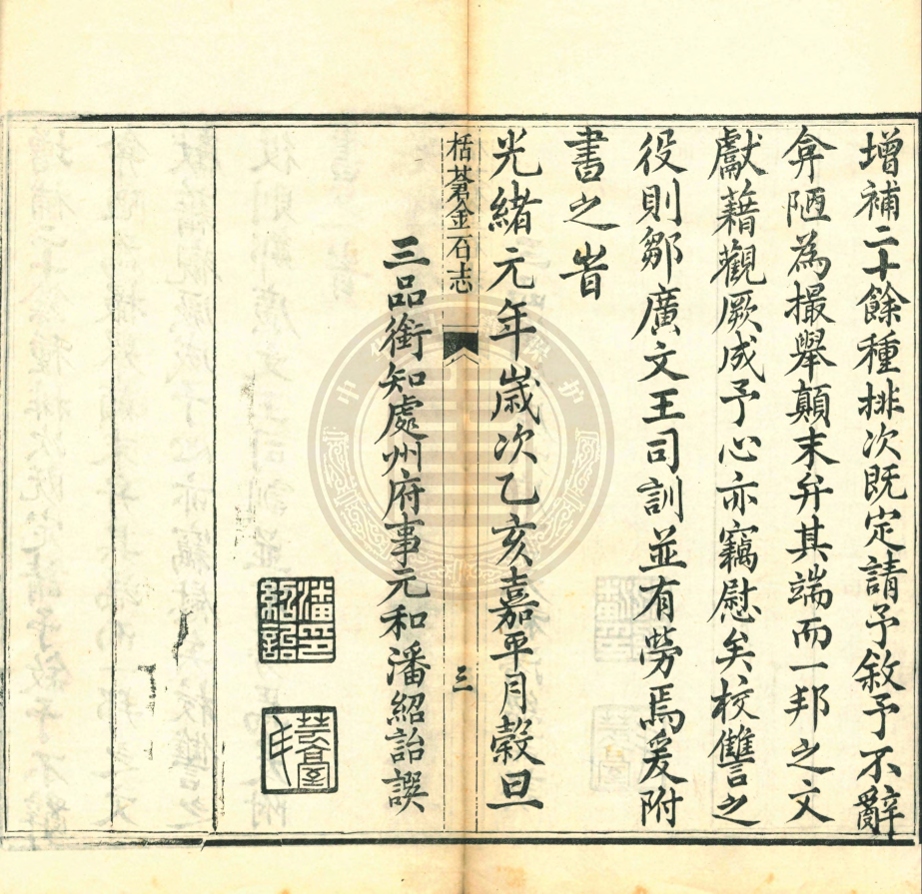 增補二十餘種排次既定請予敘予不辭
弇陋為撮舉顛末弁其端而一邦之文
獻藉觀厥成予心亦竊慰矣校讎之
役則鄒廣文王司訓並有勞焉爰附
書之旹
光緒元年歲次乙亥嘉平月穀旦
栝蒼金石志
三
三品銜知處州府事元和潘紹詒譔
潘印紹詒